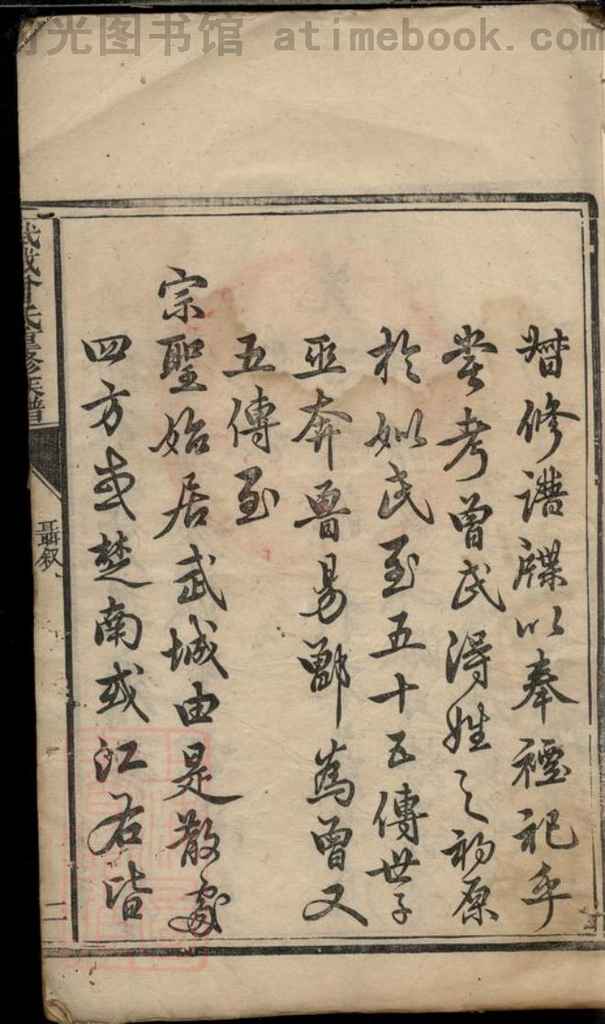 时光图书馆 atimebook.com
朁修譜牒以奉禋祀乎
嘗考曾氏得姓之初原
於姒氏至五十五傳世子
巫奔魯易鄫為曾又
五傳至
宗聖始居武城由是散處
四方或楚南或江右皆
武城曾氏重修族譜
聶叙
二